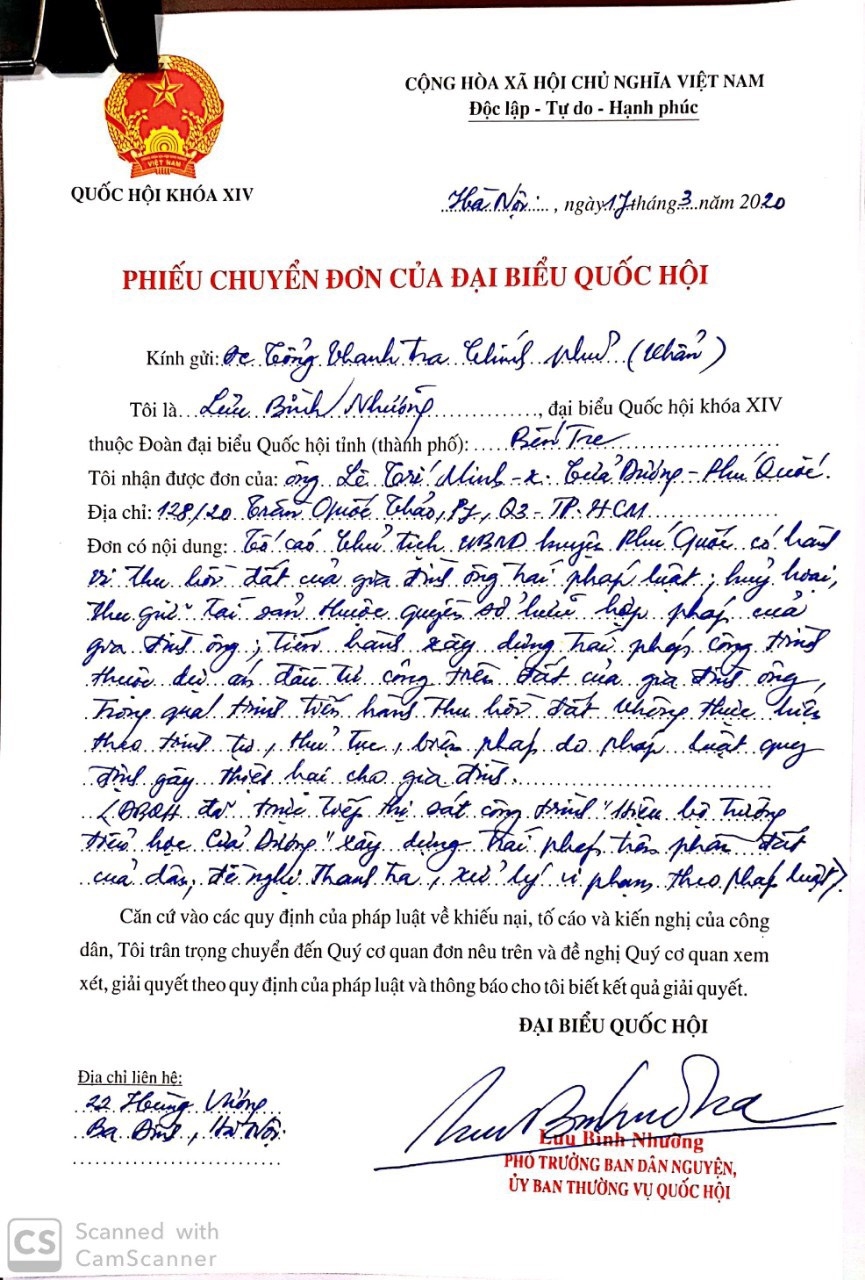 CỘNG HÒA XÃ HỘI CHỦ NGHĨA VIỆT NAM
Độc lập - Tự do - Hạnh phúc
VIỆT NAM
QUỐC HỘI KHÓA XIV
Hà Nội, ngày 17 tháng 3 năm 2020
PHIẾU CHUYỂN ĐƠN CỦA ĐẠI BIỂU QUỐC HỘI
Kính gửi: Đc Tổng Thanh tra Chính phủ (Khẩn)
Tôi là Lưu Bình Nhưỡng, đại biểu Quốc hội khóa XIV
thuộc Đoàn đại biểu Quốc hội tỉnh (thành phố): Bến Tre
Tôi nhận được đơn của: ông Lê Trí Minh - x. Cửa Dương - Phú Quốc.
Địa chỉ: 128/20 Trần Quốc Thảo, P7, Q3 - TP. HCM
Đơn có nội dung: Tố cáo Chủ tịch UBND huyện Phú Quốc có hành
vi thu hồi đất của gia đình ông trái pháp luật; huỷ hoại,
thu giữ tài sản thuộc quyền sở hữu hợp pháp của
gia đình ông; tiến hành xây dựng trái phép công trình
thuộc dự án đầu tư công trên đất của gia đình ông,
trong quá trình tiến hành thu hồi đất không thực hiện
theo trình tự, thủ tục, biện pháp do pháp luật quy
định gây thiệt hại cho gia đình.
(ĐBQH đã trực tiếp thị sát công trình "trường
tiểu học Cửa Dương" xây dựng trái phép trên phần đất
của dân; đề nghị thanh tra, xử lý vi phạm theo pháp luật).
Căn cứ vào các quy định của pháp luật về khiếu nại, tố cáo và kiến nghị của công
dân, Tôi trân trọng chuyển đến Quý cơ quan đơn nêu trên và đề nghị Quý cơ quan xem
xét, giải quyết theo quy định của pháp luật và thông báo cho tôi biết kết quả giải quyết.
ĐẠI BIỂU QUỐC HỘI
Địa chỉ liên hệ:
22 Hùng Vương
Ba Đình, Hà Nội
Lưu Bình Nhưỡng
PHÓ TRƯỞNG BAN DÂN NGUYỆN,
ỦY BAN THƯỜNG VỤ QUỐC HỘI
CS
Scanned with
CamScanner